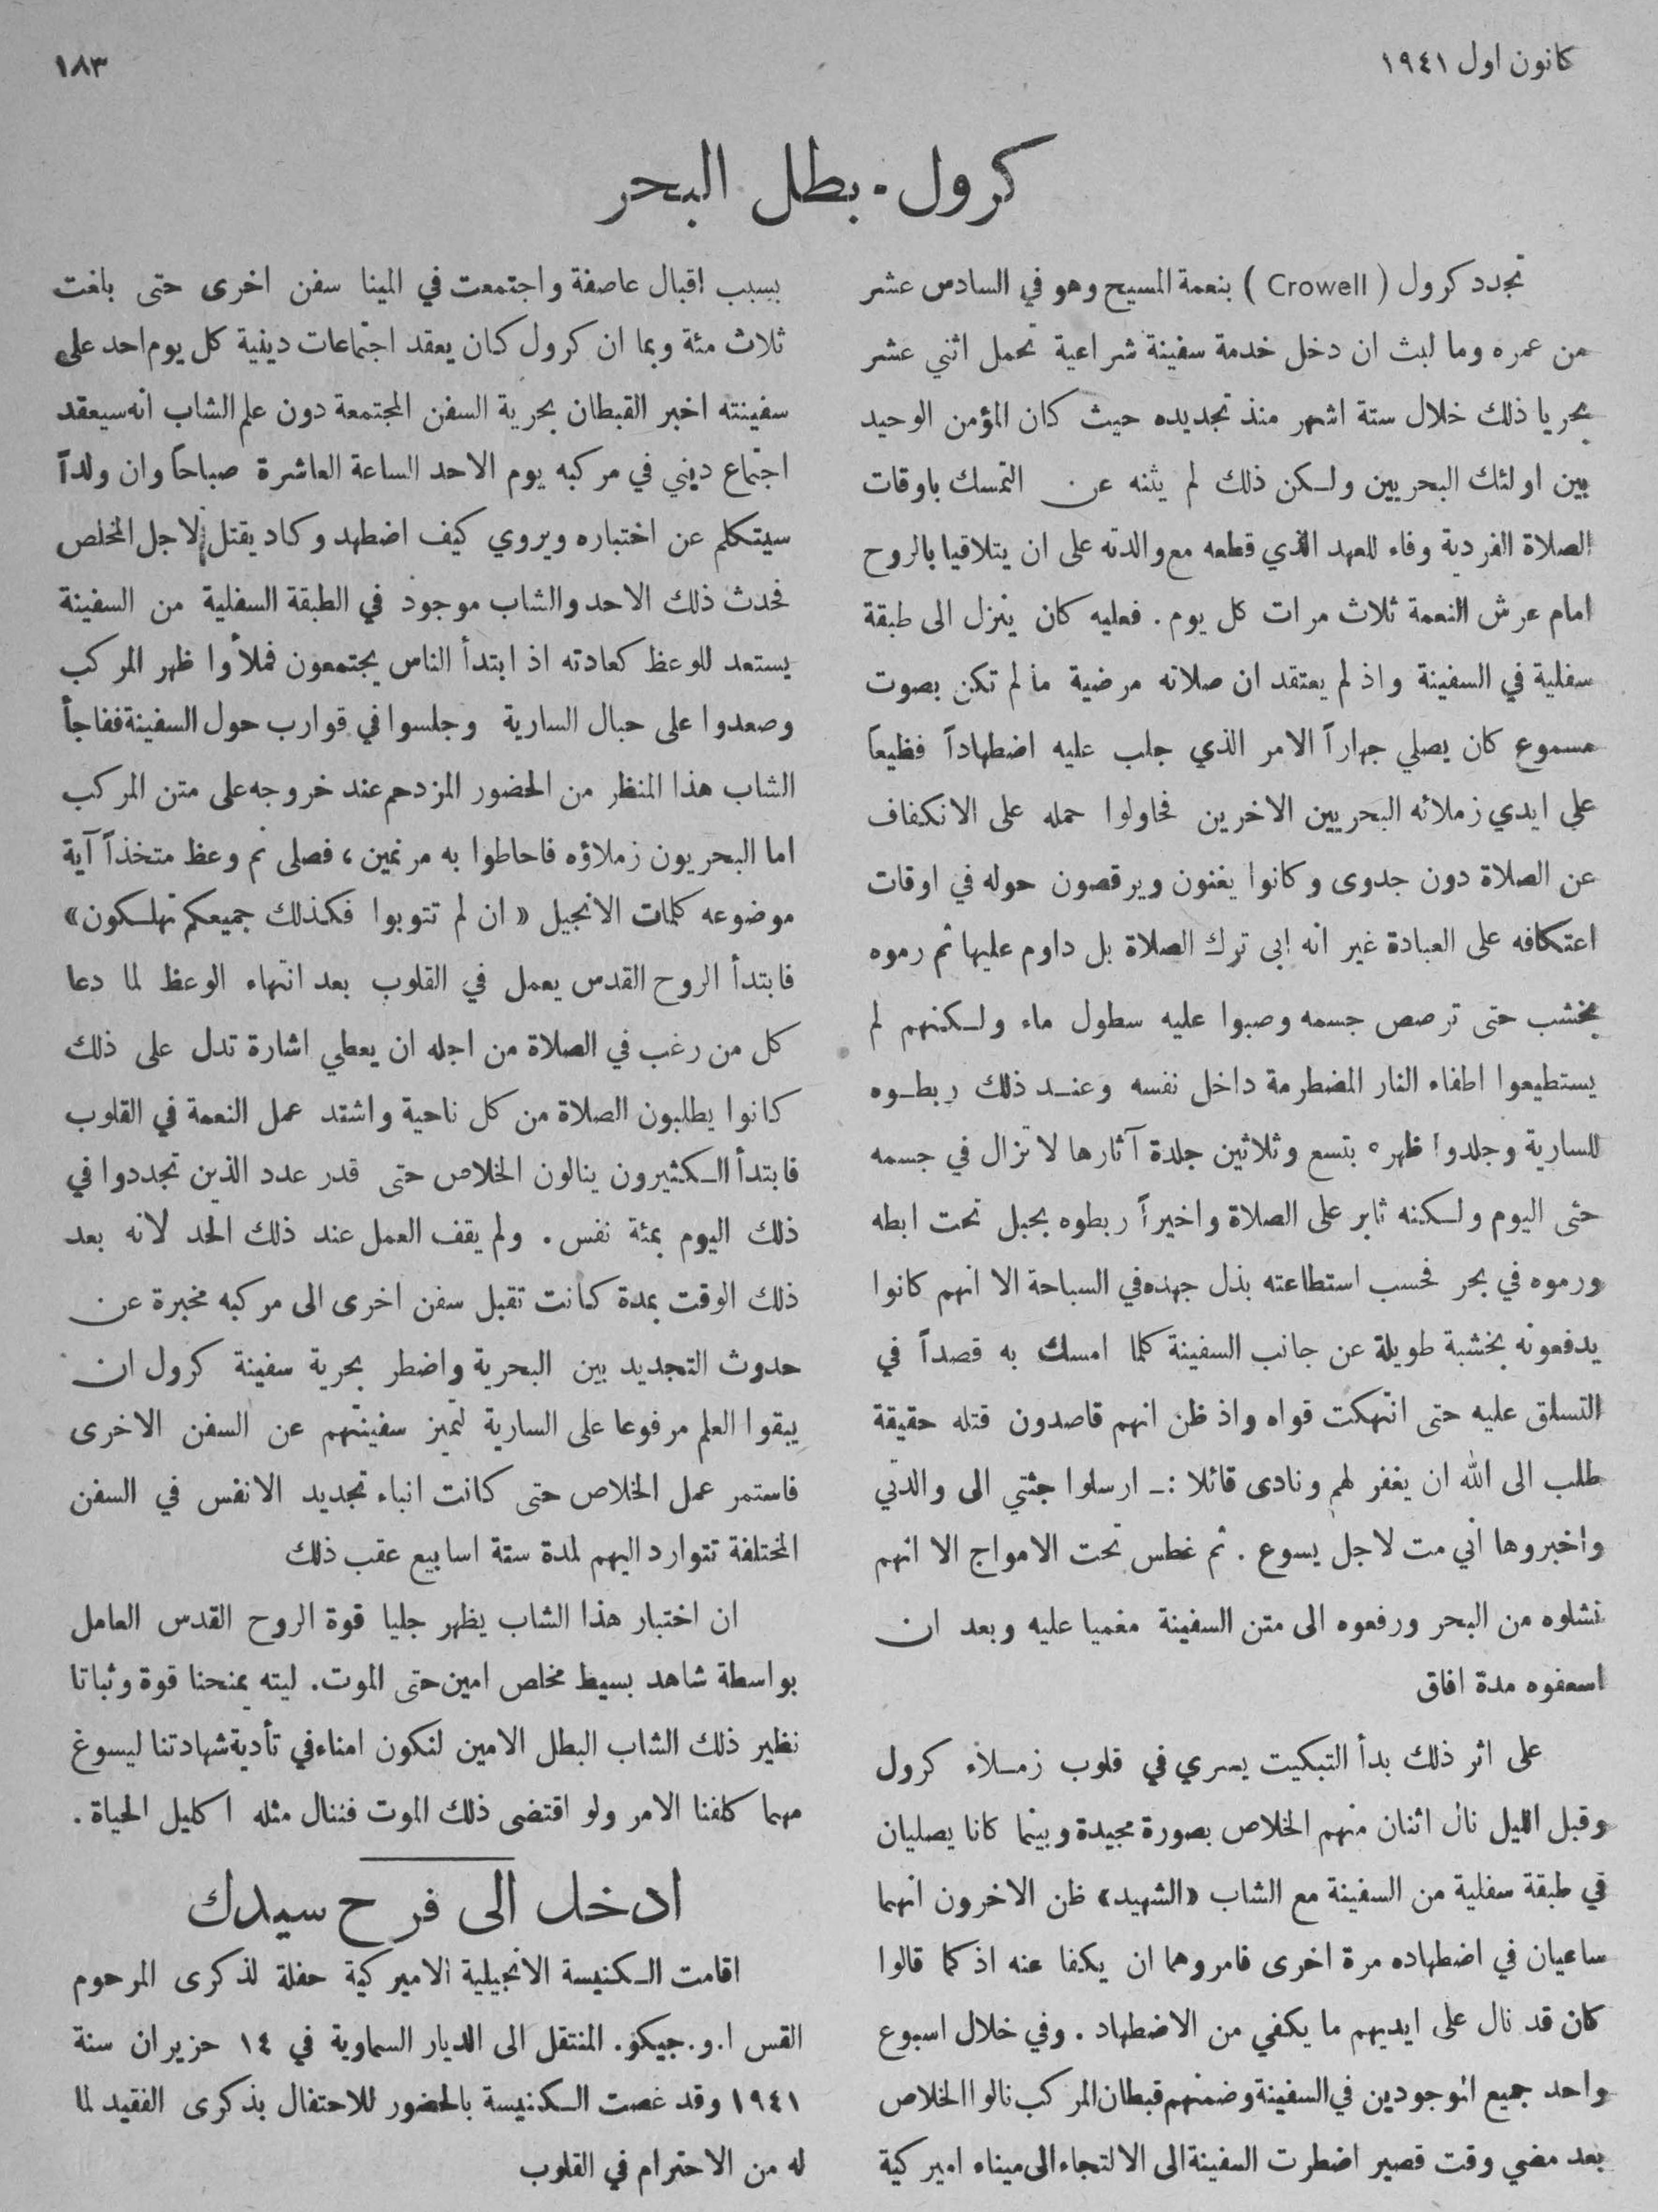 كانون اول ١٩٤١
١٨٣
كرول - بطل البحر
تجدد كرول ( Crowell ) بنعمة المسيح وهو في السادس عشر
من عمره وما لبث ان دخل خدمة سفينة شراعية تحمل اثني عشر
بحريا ذلك خلال ستة اشهر منذ تجديده حيث كان المؤمن الوحيد
بين اولئك البحريين ولكن ذلك لم يثنه عن التمسك باوقات
الصلاة الفردية وفاء للعهد الذي قطعه مع والدته على ان يتلاقيا بالروح
امام عرش النعمة ثلاث مرات كل يوم . فعليه كان ينزل الى طبقة
سفلية في السفينة واذ لم يعتقد ان صلاته مرضية ما لم تكن بصوت
مسموع كان يصلي جهاراً الامر الذي جلب عليه اضطهاداً فظيعاً
على ايدي زملائه البحريين الاخرين فحاولوا حمله على الانكفاف
عن الصلاة دون جدوى وكانوا يغنون ويرقصون حوله في اوقات
اعتكافه على العبادة غير انه ابى ترك الصلاة بل داوم عليها ثم رموه
بخشب حتى ترصص جسمه وصبوا عليه سطول ماء ولكنهم لم
يستطيعوا اطفاء النار المضطرمة داخل نفسه وعند ذلك ربطوه
للسارية وجلدوا ظهره بتسع وثلاثين جلدة آثارها لا تزال في جسمه
حتى اليوم ولكنه ثابر على الصلاة واخيراً ربطوه بحبل تحت ابطه
ورموه في بحر فحسب استطاعته بذل جهده في السباحة الا انهم كانوا
يدفعونه بخشبة طويلة عن جانب السفينة كلما امسك به قصداً في
التسلق عليه حتى انتهكت قواه واذ ظن انهم قاصدون قتله حقيقة
طلب الى الله ان يغفر لهم ونادى قائلا :ـ ارسلوا جثتي الى والدتي
واخبروها اني مت لاجل يسوع . ثم غطس تحت الامواج الا انهم
نشلوه من البحر ورفعوه الى متن السفينة مغميا عليه وبعد ان
اسعفوه مدة افاق
على اثر ذلك بدأ التبكيت يسري في قلوب زملاء كرول
وقبل الليل نال اثنان منهم الخلاص بصورة مجيدة وبينما كانا يصليان
في طبقة سفلية من السفينة مع الشاب «الشهيد» ظن الاخرون انهما
ساعيان في اضطهاده مرة اخرى فامروهما ان يكفا عنه اذ كما قالوا
كان قد نال على ايديهم ما يكفي من الاضطهاد . وفي خلال اسبوع
واحد جميع الموجودين في السفينة وضمنهم قبطان المركب نالوا الخلاص
بعد مضي وقت قصير اضطرت السفينة الى الالتجاء الى ميناء اميركية
بسبب اقبال عاصفة واجتمعت في المينا سفن اخرى حتى بلغت
ثلاث مئة وبما ان كرول كان يعقد اجتماعات دينية كل يوم احد على
سفينته اخبر القبطان بحرية السفن المجتمعة دون علم الشاب انه سيعقد
اجتماع ديني في مركبه يوم الاحد الساعة العاشرة صباحاً وان ولداً
سيتكلم عن اختباره ويروي كيف اضطهد وكاد يقتل لاجل المخلص
فحدث ذلك الاحد والشاب موجود في الطبقة السفلية من السفينة
يستعد للوعظ كعادته اذ ابتدأ الناس يجتمعون فملأوا ظهر المركب
وصعدوا على حبال السارية وجلسوا في قوارب حول السفينة ففاجأ
الشاب هذا المنظر من الحضور المزدحم عند خروجه على متن المركب
اما البحريون زملاؤه فاحاطوا به مرنمين ، فصلى ثم وعظ متخذاً آية
موضوعه كلمات الانجيل « ان لم تتوبوا فكذلك جميعكم تهلكون»
فابتدأ الروح القدس يعمل في القلوب بعد انتهاء الوعظ لما دعا
كل من رغب في الصلاة من اجله ان يعطي اشارة تدل على ذلك
كانوا يطلبون الصلاة من كل ناحية واشتد عمل النعمة في القلوب
فابتدأ الكثيرون ينالون الخلاص حتى قدر عدد الذين تجددوا في
ذلك اليوم بمئة نفس . ولم يقف العمل عند ذلك الحد لانه بعد
ذلك الوقت بمدة كانت تقبل سفن اخرى الى مركبه مخبرة عن
حدوث التجديد بين البحرية واضطر بحرية سفينة كرول ان
يبقوا العلم مرفوعا على السارية لتميز سفينتهم عن السفن الاخرى
فاستمر عمل الخلاص حتى كانت انباء تجديد الانفس في السفن
المختلفة تتوارد اليهم لمدة ستة اسابيع عقب ذلك
ان اختبار هذا الشاب يظهر جليا قوة الروح القدس العامل
بواسطة شاهد بسيط مخلص امين حتى الموت. ليته يمنحنا قوة وثباتا
نظير ذلك الشاب البطل الامين لنكون امناء في تأدية شهادتنا ليسوع
مهما كلفنا الامر ولو اقتضى ذلك الموت فننال مثله اكليل الحياة .
ادخل الى فرح سيدك
اقامت الكنيسة الانجيلية الاميركية حفلة لذكرى المرحوم
القس ا.و.جيكو. المنتقل الى الديار السماوية في ١٤ حزيران سنة
١٩٤١ وقد غصت الكنيسة بالحضور للاحتفال بذكرى الفقيد لما
له من الاحترام في القلوب